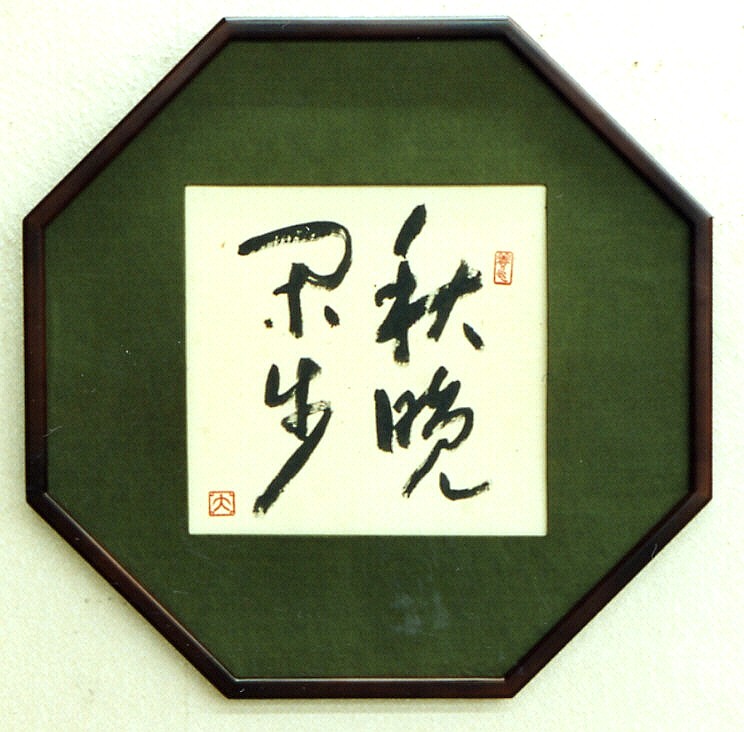 秋晩
閑歩
大